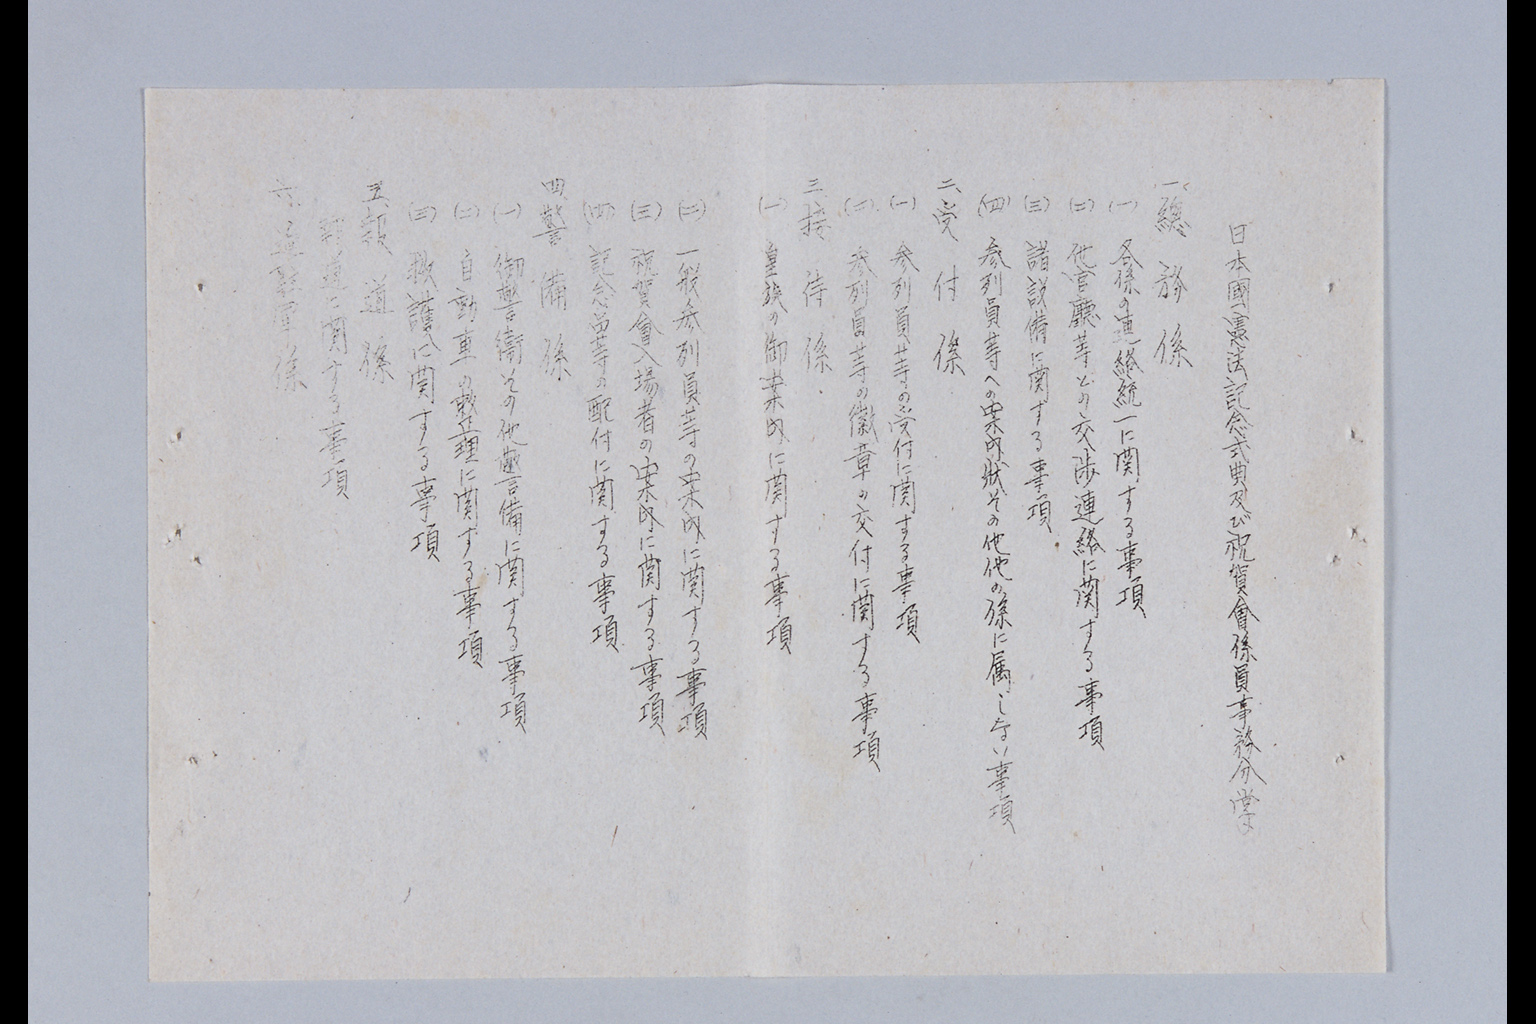 日本國憲法記念式典及び祝賀會係員事務分掌
一、總務係
(一) 各係の連絡統一に関する事項
(二) 他官廳等との交渉連絡に関する事項
(三) 諸設備に関する事項
(四) 参列員等への案内狀その他他の係に属しない事項
二、受付係
(一) 参列員等の受付に関する事項
(二) 参列員等の徽章の交付に関する事項
三、接待係
(一) 皇族の御案内に関する事項
(二) 一般参列員等の案内に関する事項
(三) 祝賀會入場者の案内に関する事項
(四) 記念品等の配付に関する事項
四、警備係
(一) 御警衛その他警備に関する事項
(二) 自動車の整理に関する事項
(三) 救護に関する事項
五、報道係
報道に関する事項
六、係